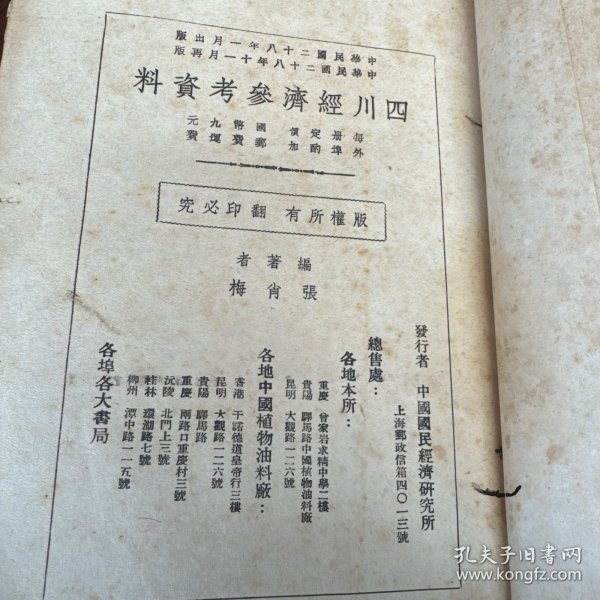 中華民國二十八年一月出版
中華民國二十八年十一月再版
四川經濟參考資料
每冊定價國幣九元
外埠酌加郵費運費
版權所有 翻印必究
編著者
張肖梅
發行者 中國國民經濟研究所
上海郵政信箱四〇一三號
總售處：
各地本所：
重慶 曾家岩求精中學二樓
貴陽 驛馬路中國植物油料廠
昆明 大觀路一二六號
各地中國植物油料廠：
香港 于諾德道皇帝行三樓
昆明 大觀路一二六號
貴陽 驛馬路
重慶 兩路口重慶村三號
沅陵 北門上三號
桂林 環湖路七號
柳州 潭中路一一五號
各埠各大書局
孔夫子旧书网
www.kongfz.com